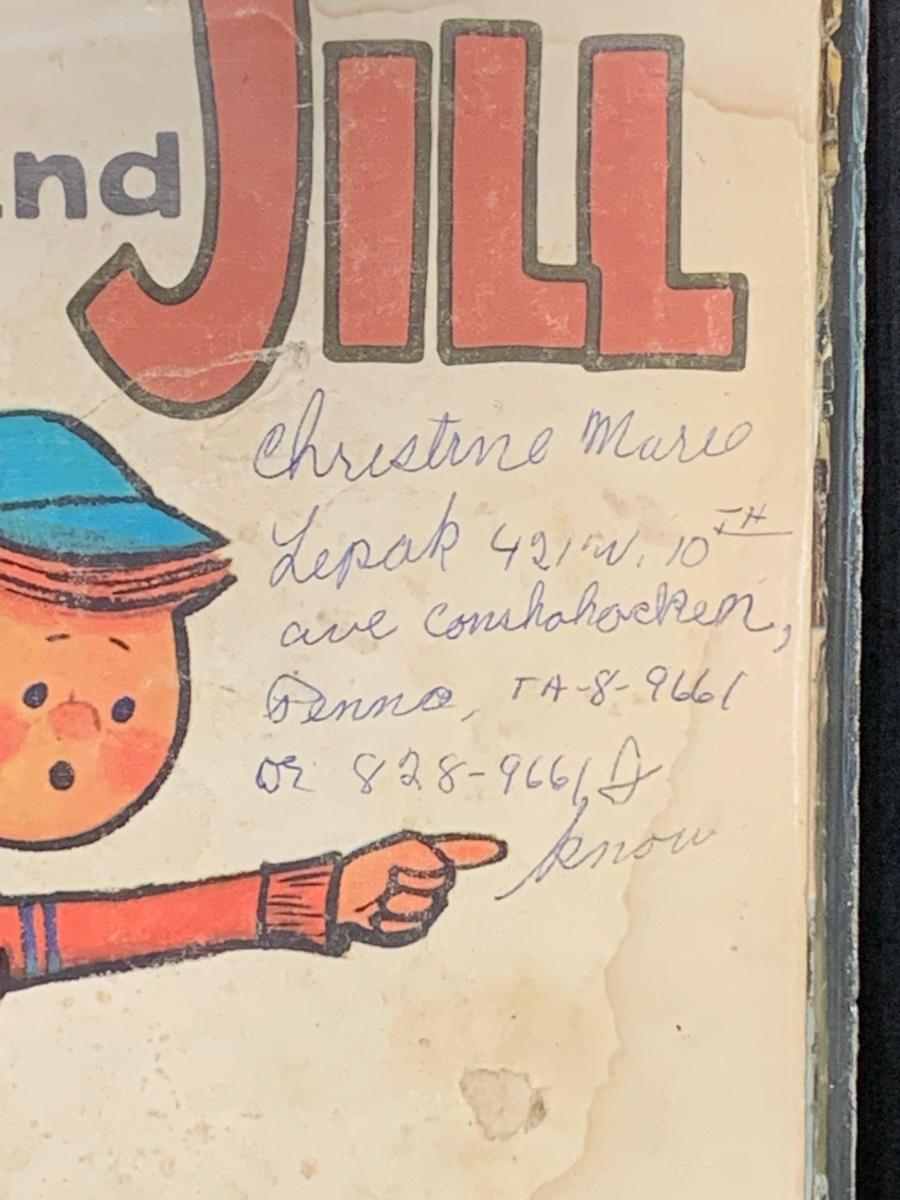 JILL
and
Christine Marie
Lepak 421 W. 10TH
ave conshohocken,
Penna, TA-8-9661
or 828-9661 I
know